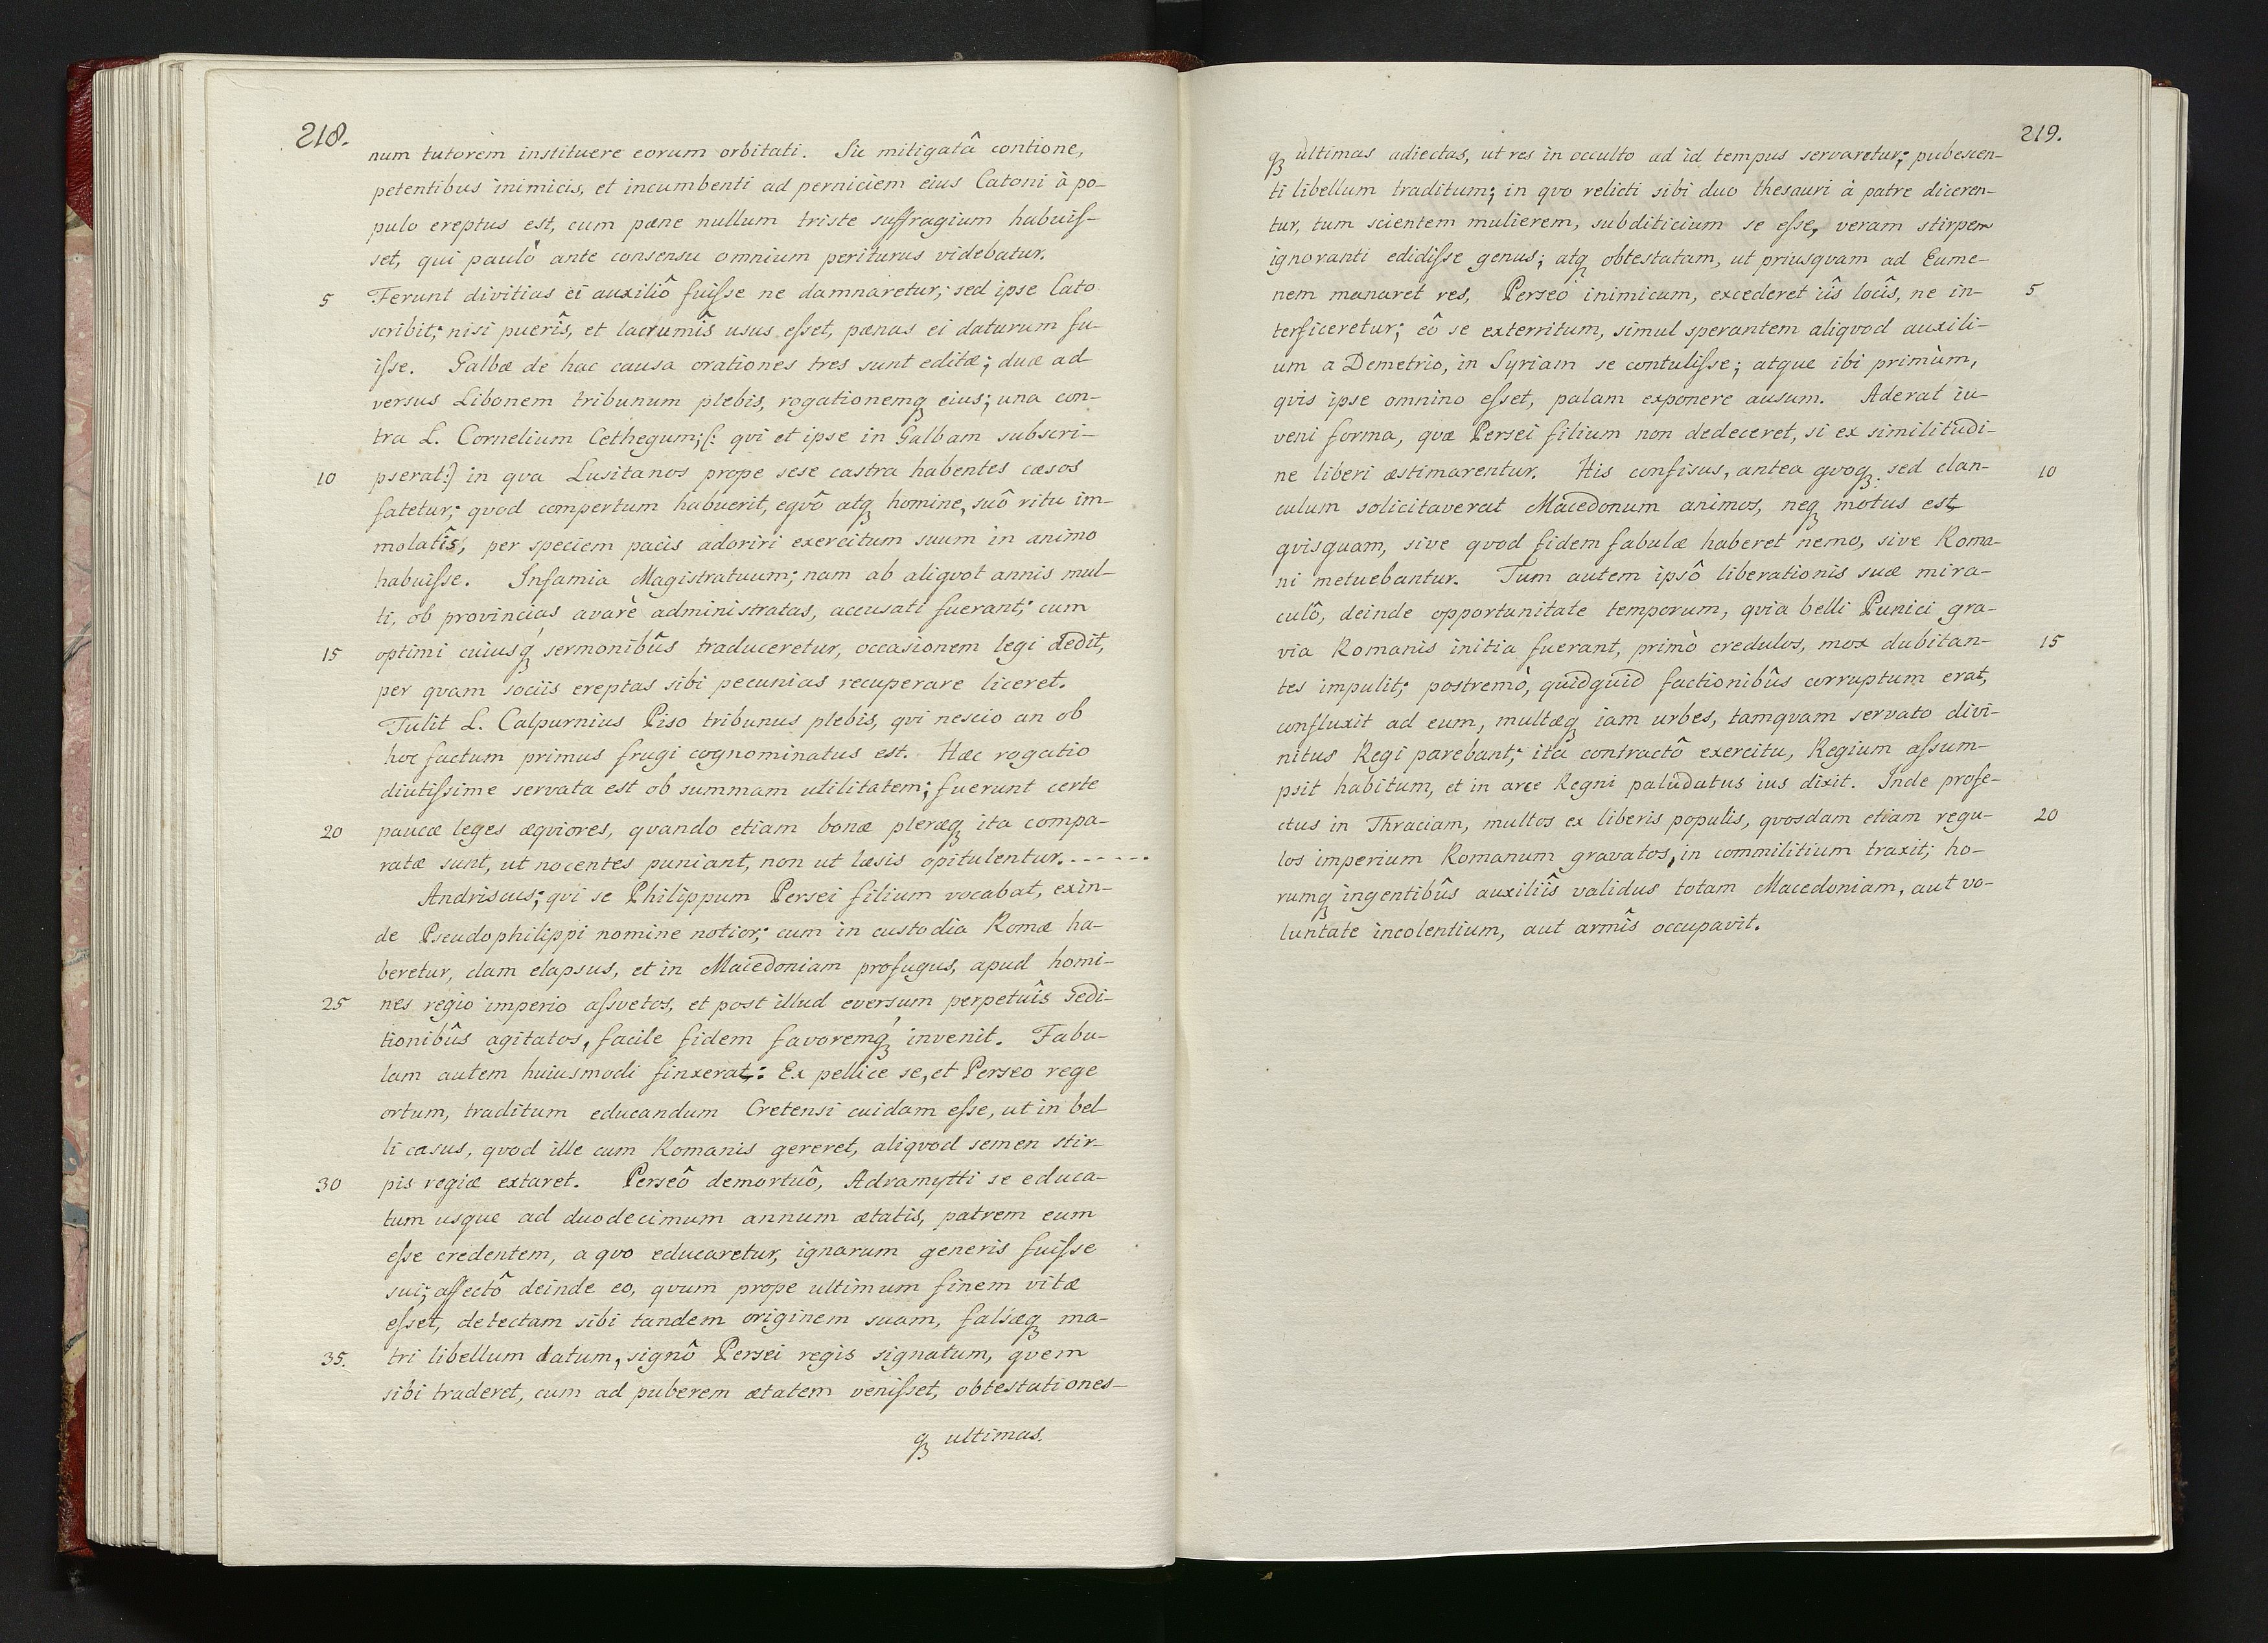 218.
num tutorem instituere eorum orbitati. Sic mitigatâ contione,
petentibus inimicis, et incumbenti ad perniciem eius Catoni à po-
pulo ereptus est, cum pæne nullum triste suffragium habuiſ-
set, qui paulò ante consensu omnium periturus videbatur.
5 Ferunt divitias ei auxiliô fuiſse ne damnaretur; sed ipse Cato
scribit; nisi puerîs, et lacrumîs usus eſset, pænas ei daturum fu-
iſse. Galbæ de hac causa orationes tres sunt editæ; duæ ad
versus Libonem tribunum plebis, rogationemqꝫ eius; una con-
tra L. Cornelium Cethegum; (: qvi et ipse in Galbam subscri-
10 pserat:) in qva Lusitanos prope sese castra habentes cæsos
fatetur; qvod compertum habuerit, eqvô atqꝫ homine, suô ritu im-
molatîs, per speciem pacis adoriri exercitum suum in animo
habuiſse. Infamia Magistratuum; nam ab aliqvot annis mul-
ti, ob provincias avarè administratas, accusati fuerant; cum
15 optimi cuiusqꝫ sermonibûs traduceretur, occasionem legi dedit,
per qvam sociis ereptas sibi pecunias recuperare liceret.
Tulit L. Calpurnius Piso tribunus plebis, qvi nescio an ob
hoc factum primus frugi cognominatus est. Hæc rogatio
diutiſsime servata est ob summam utilitatem; fuerunt certe
20 paucæ leges æqviores, qvando etiam bonæ pleræqꝫ ita compa-
ratæ sunt, ut nocentes puniant, non ut læsis opitulentur.------
Andriscus; qvi se Philippum Persei filium vocabat, exin-
de Pseudophilippi nomine notior; cum in custodia Romæ ha-
beretur, clam elapsus, et in Macedoniam profugus, apud homi-
25 nes regio imperio aſsvetos, et post illud eversum perpetuîs sedi-
tionibûs agitatos, facile fidem favoremqꝫ invenit. Fabu-
lam autem huiusmodi finxerat: Ex pellice se, et Perseo rege
ortum, traditum educandum Cretensi cuidam eſse, ut in bel-
li casus, qvod ille cum Romanis gereret, aliqvod semen stir-
30 pis regiæ extaret. Perseô demortuô, Adramytti se educa-
tum usque ad duodecimum annum ætatis, patrem eum
eſse credentem, a qvo educaretur, ignarum generis fuiſse
sui; affectô deinde eo, qvum prope ultimum finem vitæ
eſset, detectam sibi tandem originem suam, falsæqꝫ ma-
35. tri libellum datum, signô Persei regis signatum, qvem
sibi traderet, cum ad puberem ætatem veniſset, obtestationes-
qꝫ ultimas.
219.
qꝫ ultimas adiectas, ut res in occulto ad id tempus servaretur; pubescen-
ti libellum traditum; in qvo relicti sibi duo thesauri à patre diceren-
tur, tum scientem mulierem, subditicium se eſse, veram stirpem
ignoranti edidiſse genus; atqꝫ obtestatam, ut priusqvam ad Eume-
5 nem manaret res, Perseo inimicum, excederet iîs locîs, ne in-
terficeretur; eô se exterritum, simul sperantem aliqvod auxili-
um a Demetrio, in Syriam se contuliſse; atque ibi primùm,
qvis ipse omnino eſset, palam exponere ausum. Aderat iu
veni forma, qvæ Persei filium non dedeceret, si ex similitudi-
10 ne liberi æstimarentur. His confisus, antea qvoqꝫ sed clan-
culum solicitaverat Macedonum animos, neqꝫ motus est
qvisquam, sive qvod fidem fabulæ haberet nemo, sive Roma-
ni metuebantur. Tum autem ipsô liberationis suæ mira-
culô, deinde opportunitate temporum, qvia belli Punici gra-
15 via Romanis initia fuerant, primò credulos, mox dubitan-
tes impulit; postremò, quidquid factionibûs corruptum erat,
confluxit ad eum, multæqꝫ iam urbes, tamqvam servato divi-
nitus Regi parebant; ita contractô exercitu, Regium aſsum-
psit habitum, et in arce Regni paludatus ius dixit. Inde profe-
20 ctus in Thraciam, multos ex liberis populis, qvosdam etiam regu-
los imperium Romanum gravatos, in commilitium traxit; ho-
rumqꝫ ingentibûs auxiliîs validus totam Macedoniam, aut vo-
luntate incolentium, aut armîs occupavit.